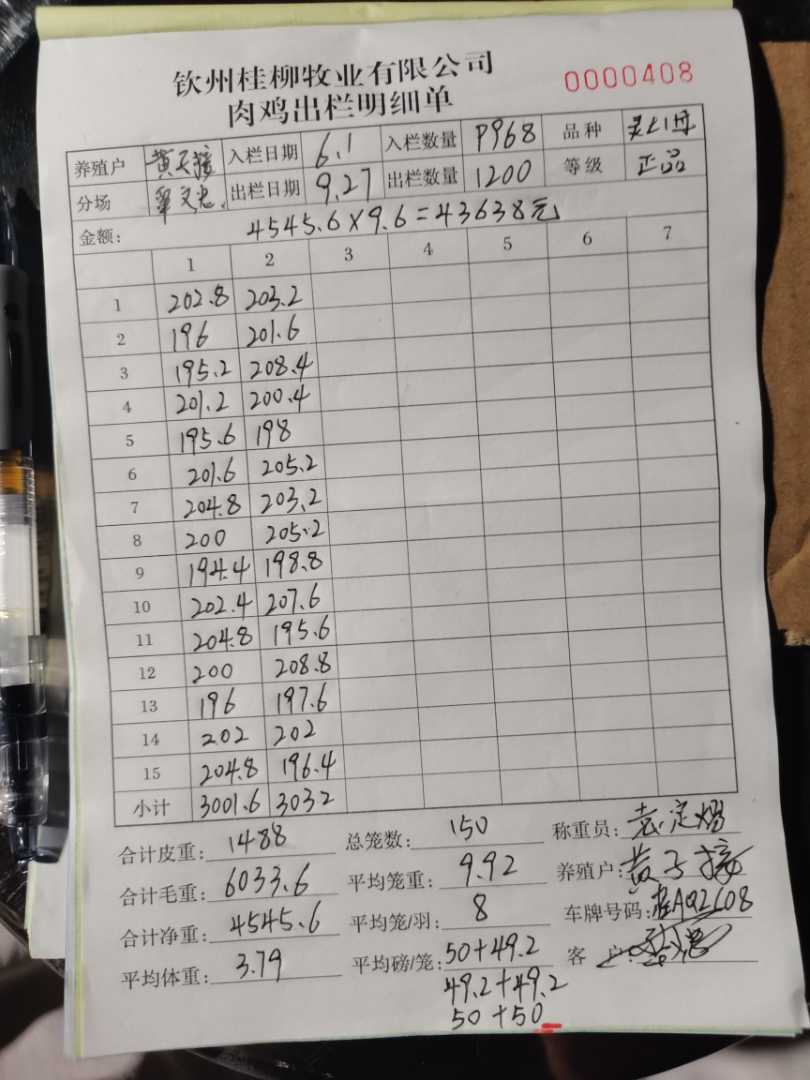 钦州桂柳牧业有限公司
0000408
肉鸡出栏明细单
养殖户 入栏日期 6.1 入栏数量 P968 品种
分场 出栏日期 9.27 出栏数量 1200 等级 正品
金额: 4545.6×9.6=43638元
1 2 3 4 5 6 7
1 202.8 203.2
2 196 201.6
3 195.2 208.4
4 201.2 200.4
5 195.6 198
6 201.6 205.2
7 204.8 203.2
8 200 205.2
9 194.4 198.8
10 202.4 207.6
11 204.8 195.6
12 200 208.8
13 196 197.6
14 202 202
15 204.8 196.4
小计 3001.6 3032
合计皮重: 1488 总笼数: 150 称重员: 袁定
合计毛重: 6033.6 平均笼重: 9.92 养殖户: 黄
合计净重: 4545.6 平均笼/羽: 8 车牌号码: 桂AQ2L08
平均体重: 3.79 平均磅/笼: 50+49.2 客户:
49.2+49.2
50+50